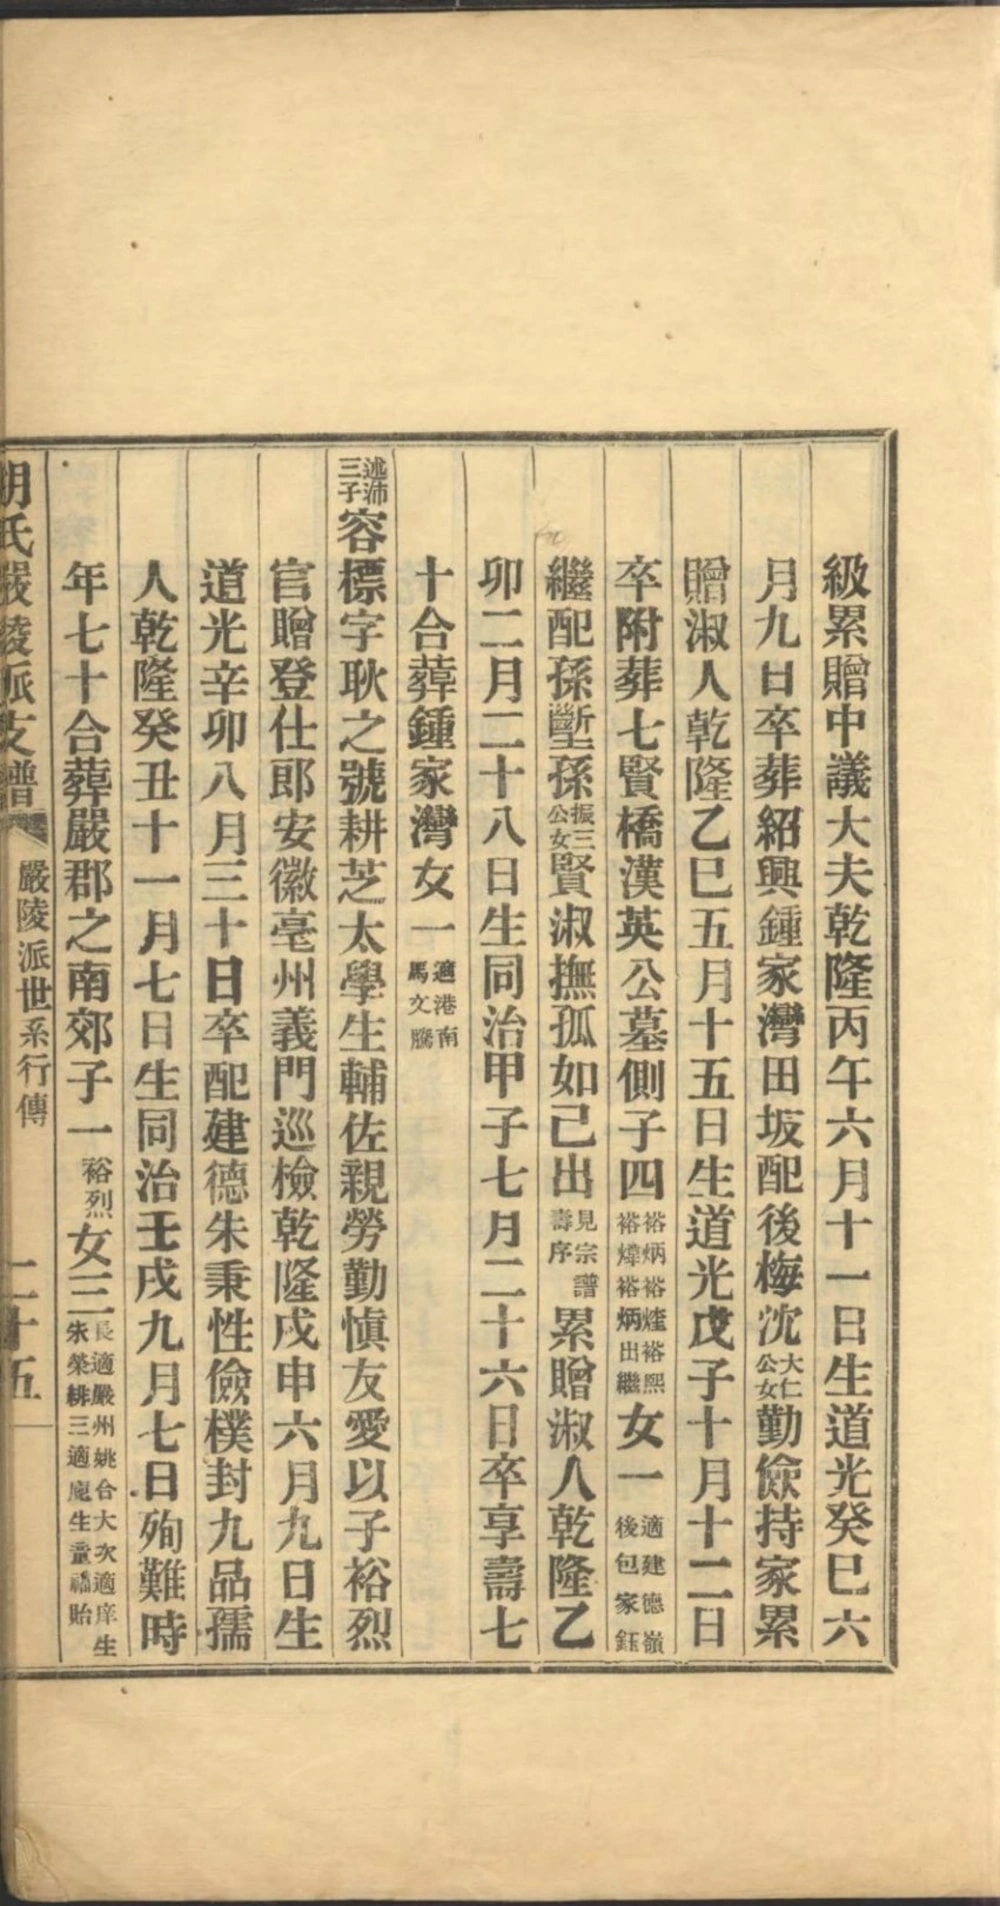 級累贈中議大夫乾隆丙午六月十一日生道光癸巳六
月九日卒葬紹興鍾家灣田坂配後梅沈大仁公女勤儉持家累
贈淑人乾隆乙巳五月十五日生道光戊子十月十二日
卒附葬七賢橋漢英公墓側子四裕炳裕煃裕熙裕煒裕炳出繼女一適建德嶺後包家鈺
繼配孫塹孫振三公女賢淑撫孤如己出見宗譜壽序累贈淑人乾隆乙
卯二月二十八日生同治甲子七月二十六日卒享壽七
十合葬鍾家灣女一適港南馬文騰
述沛三子容標字耿之號耕芝太學生輔佐親勞勤愼友愛以子裕烈
官贈登仕郎安徽亳州義門巡檢乾隆戊申六月九日生
道光辛卯八月三十日卒配建德朱秉性儉樸封九品孺
人乾隆癸丑十一月七日生同治壬戌九月七日殉難時
年七十合葬嚴郡之南郊子一裕烈女三長適嚴州姚合大次適庠生朱榮緋三適庬生童福貽
胡氏嚴陵派支譜 嚴陵派世系行傳 二十五